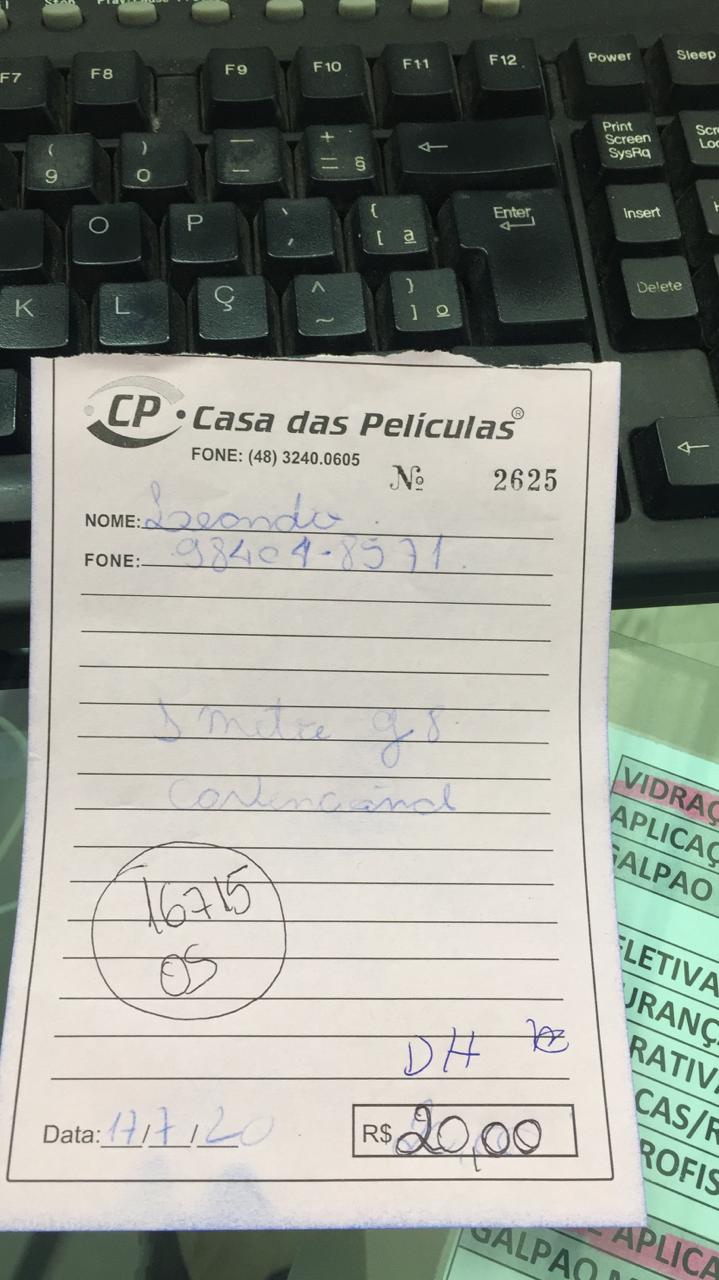 F7 F8 F9 F10 F11 F12 Power Sleep
( 9 ) 0 — - + = § ← Print Screen SysRq
O P ` ´ { [ ª Enter Insert
K L Ç ^ ~ } ] º Delete
←
CP • Casa das Películas®
FONE: (48) 3240.0605
Nº 2625
NOME: Leandro
FONE: 98404-8571
1 metro g8
convencional
16715
OS
DH
Data: 17/7/20
R$ 20,00
VIDRAÇ
APLICAÇ
GALPAO
ELETIVA
URANÇ
RATIVA
CAS/R
ROFIS
E APLICA
GALPAO M